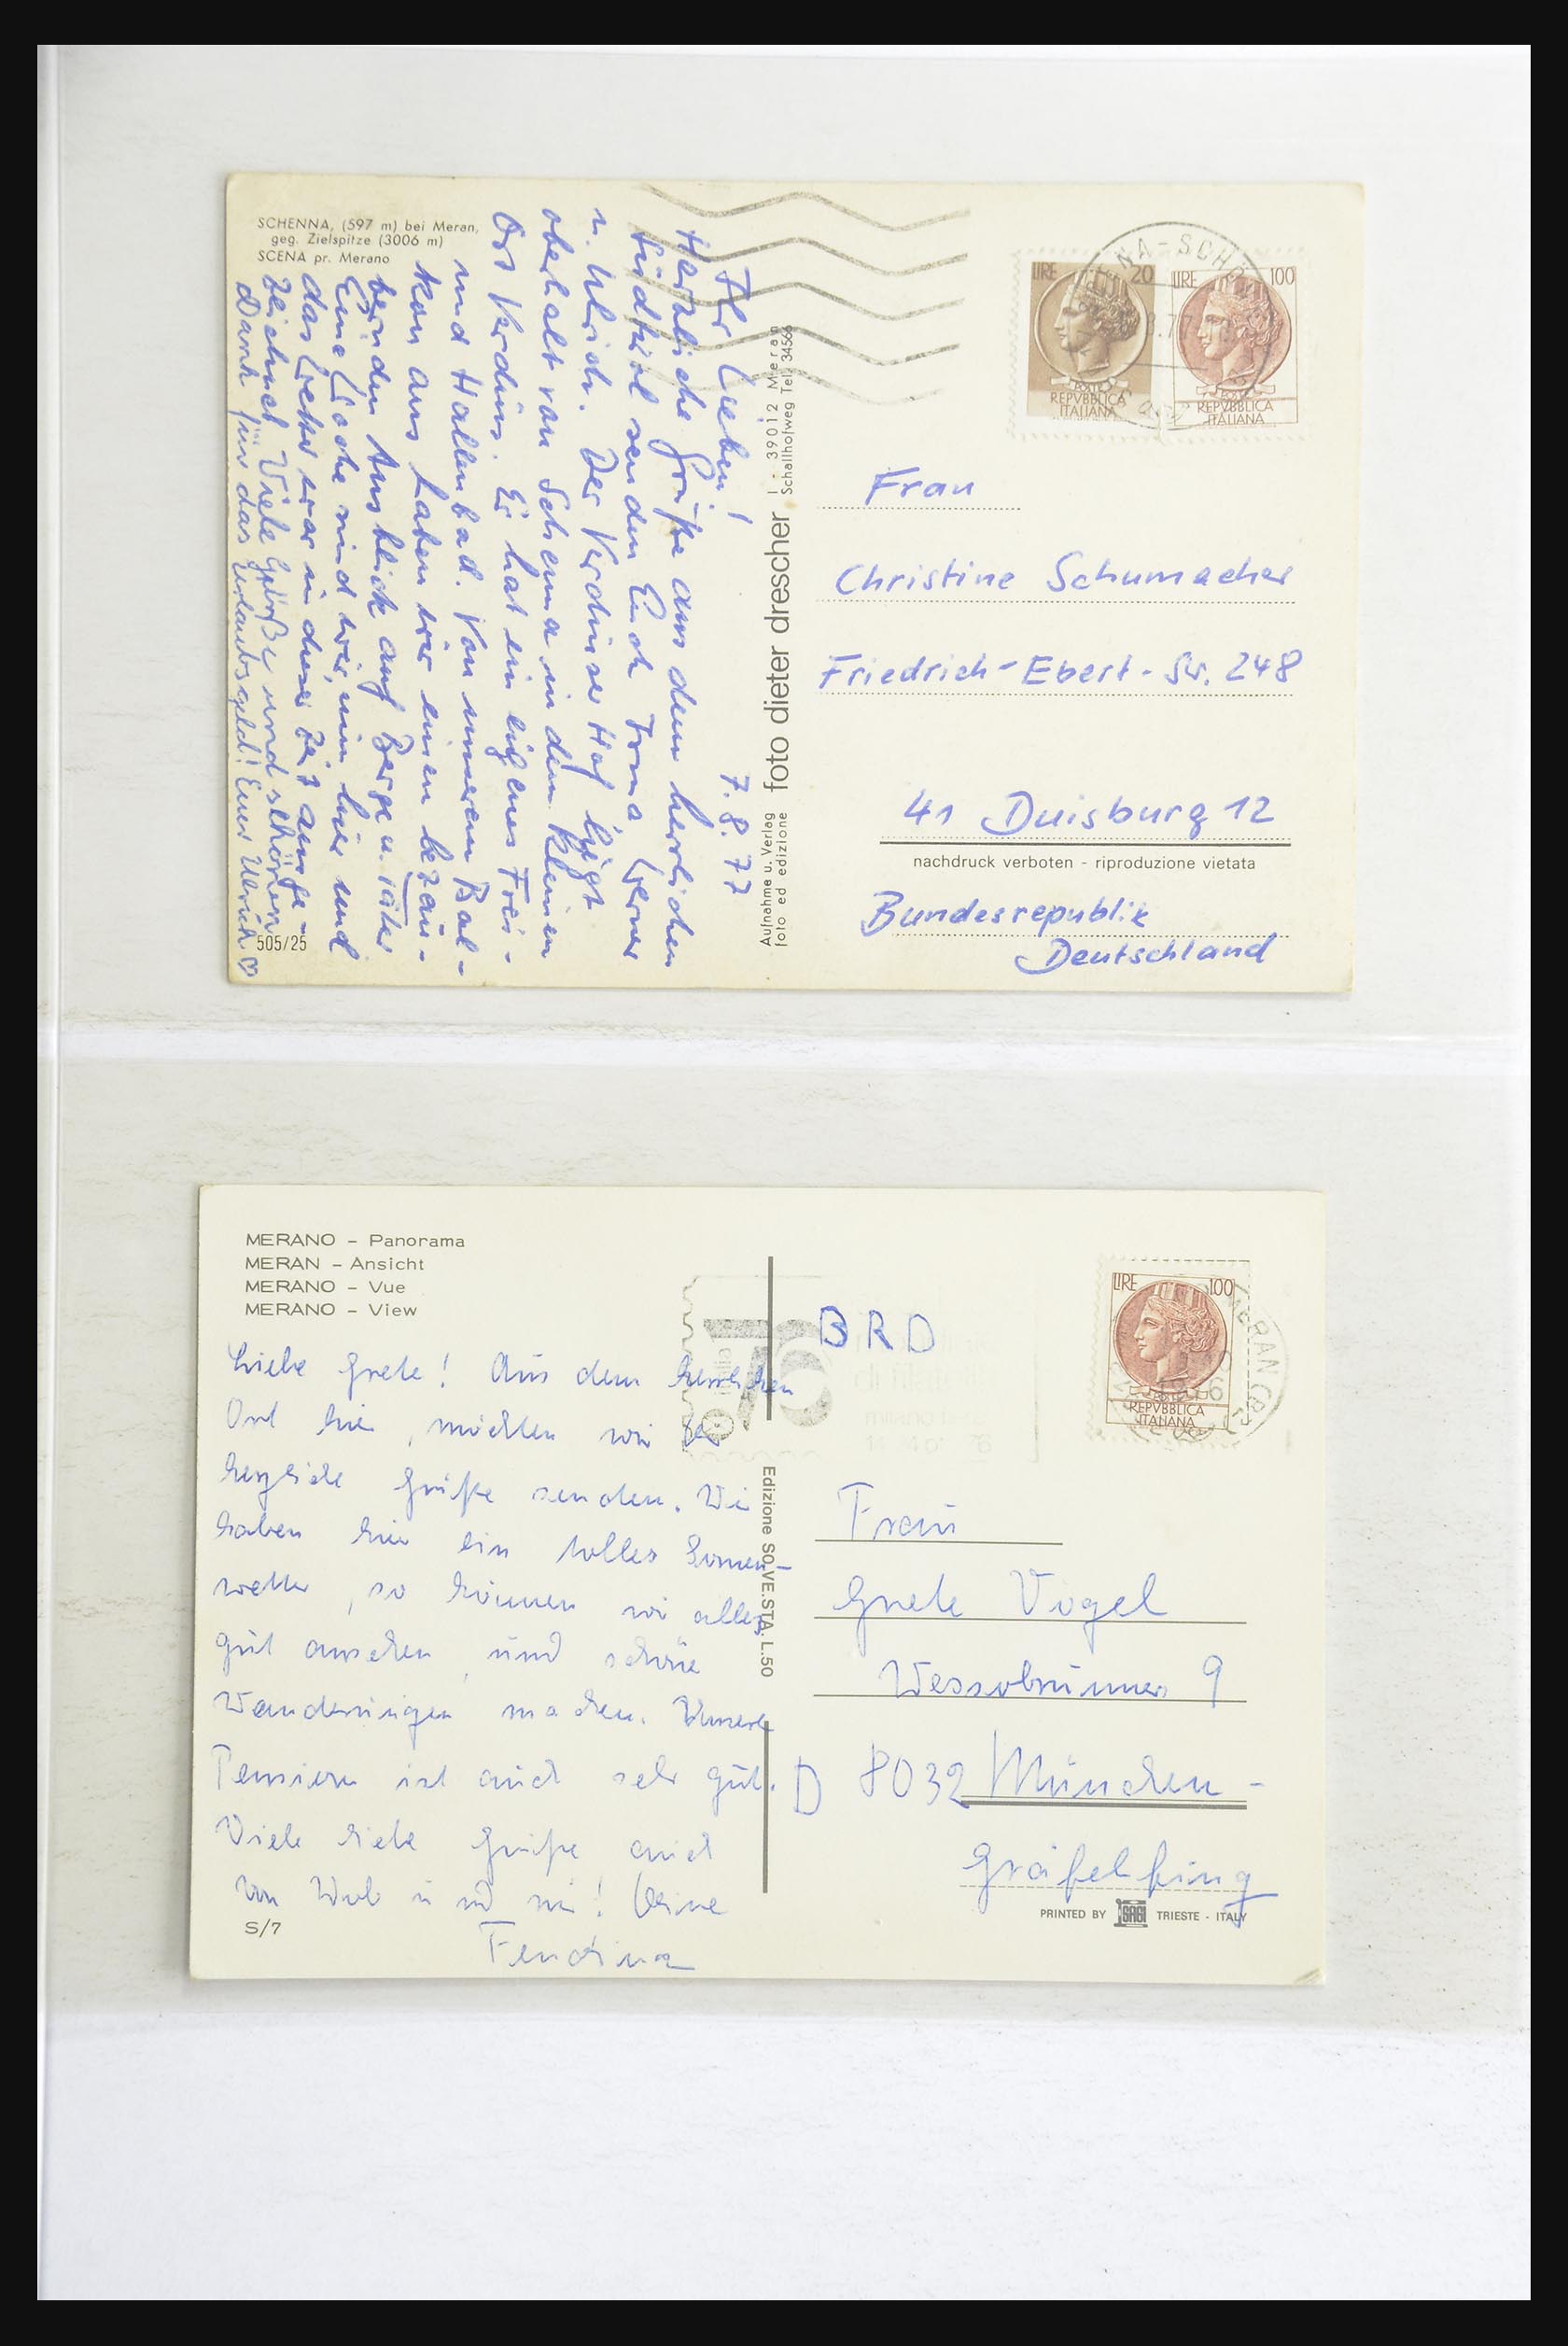 SCHENNA, (597 m) bei Meran,
geg. Zielspitze (3006 m)
SCENA pr. Merano
7.8.77
Ihr Lieben!
Herzliche Grüße aus dem herrlichen
Südtirol senden Euch Irma Werner
u. Ulrich. Der Verdinser Hof liegt
oberhalb von Schenna in dem kleinen
Ort Verdins. Er hat ein eigenes Frei-
und Hallenbad. Von unserem Bal-
kon aus haben wir einen bezau-
bernden Ausblick auf Berge u. Täler
Eine Woche sind wir nun hier und
das Wetter war in dieser Zeit ausge-
zeichnet Viele Grüße und schönen
Dank für das Urlaubsgeld! Euer Ulrich
505/25
Aufnahme u. Verlag
foto ed edizione
foto dieter drescher
I - 39012 Meran
Schallhofweg Tel. 34566
LIRE 20
POSTE
REPVBBLICA
ITALIANA
LIRE 100
REPVBBLICA
ITALIANA
NA-SCH
Frau
Christine Schumacher
Friedrich-Ebert-Str. 248
41 Duisburg 12
nachdruck verboten - riproduzione vietata
Bundesrepublik
Deutschland
MERANO – Panorama
MERAN – Ansicht
MERANO – Vue
MERANO – View
Liebe Grete! Aus dem herrlichen
Ort hier, möchten wir
herzliche Grüße senden. Wir
haben hier ein tolles Sonnen-
wetter, so können wir alles
gut ansehen und schöne
Wanderungen machen. Unsere
Pension ist auch sehr gut.
Viele liebe Grüße auch
von und mir! Deine
S/7
Edizione SO.VE.STA. L.50
76
milano
BRD
LIRE 100
REPVBBLICA
ITALIANA
MERAN (BZ)
Frau
Grete Vogel
Wessobrunner 9
D 8032 München -
Gräfelfing
PRINTED BY SAGI TRIESTE - ITALY